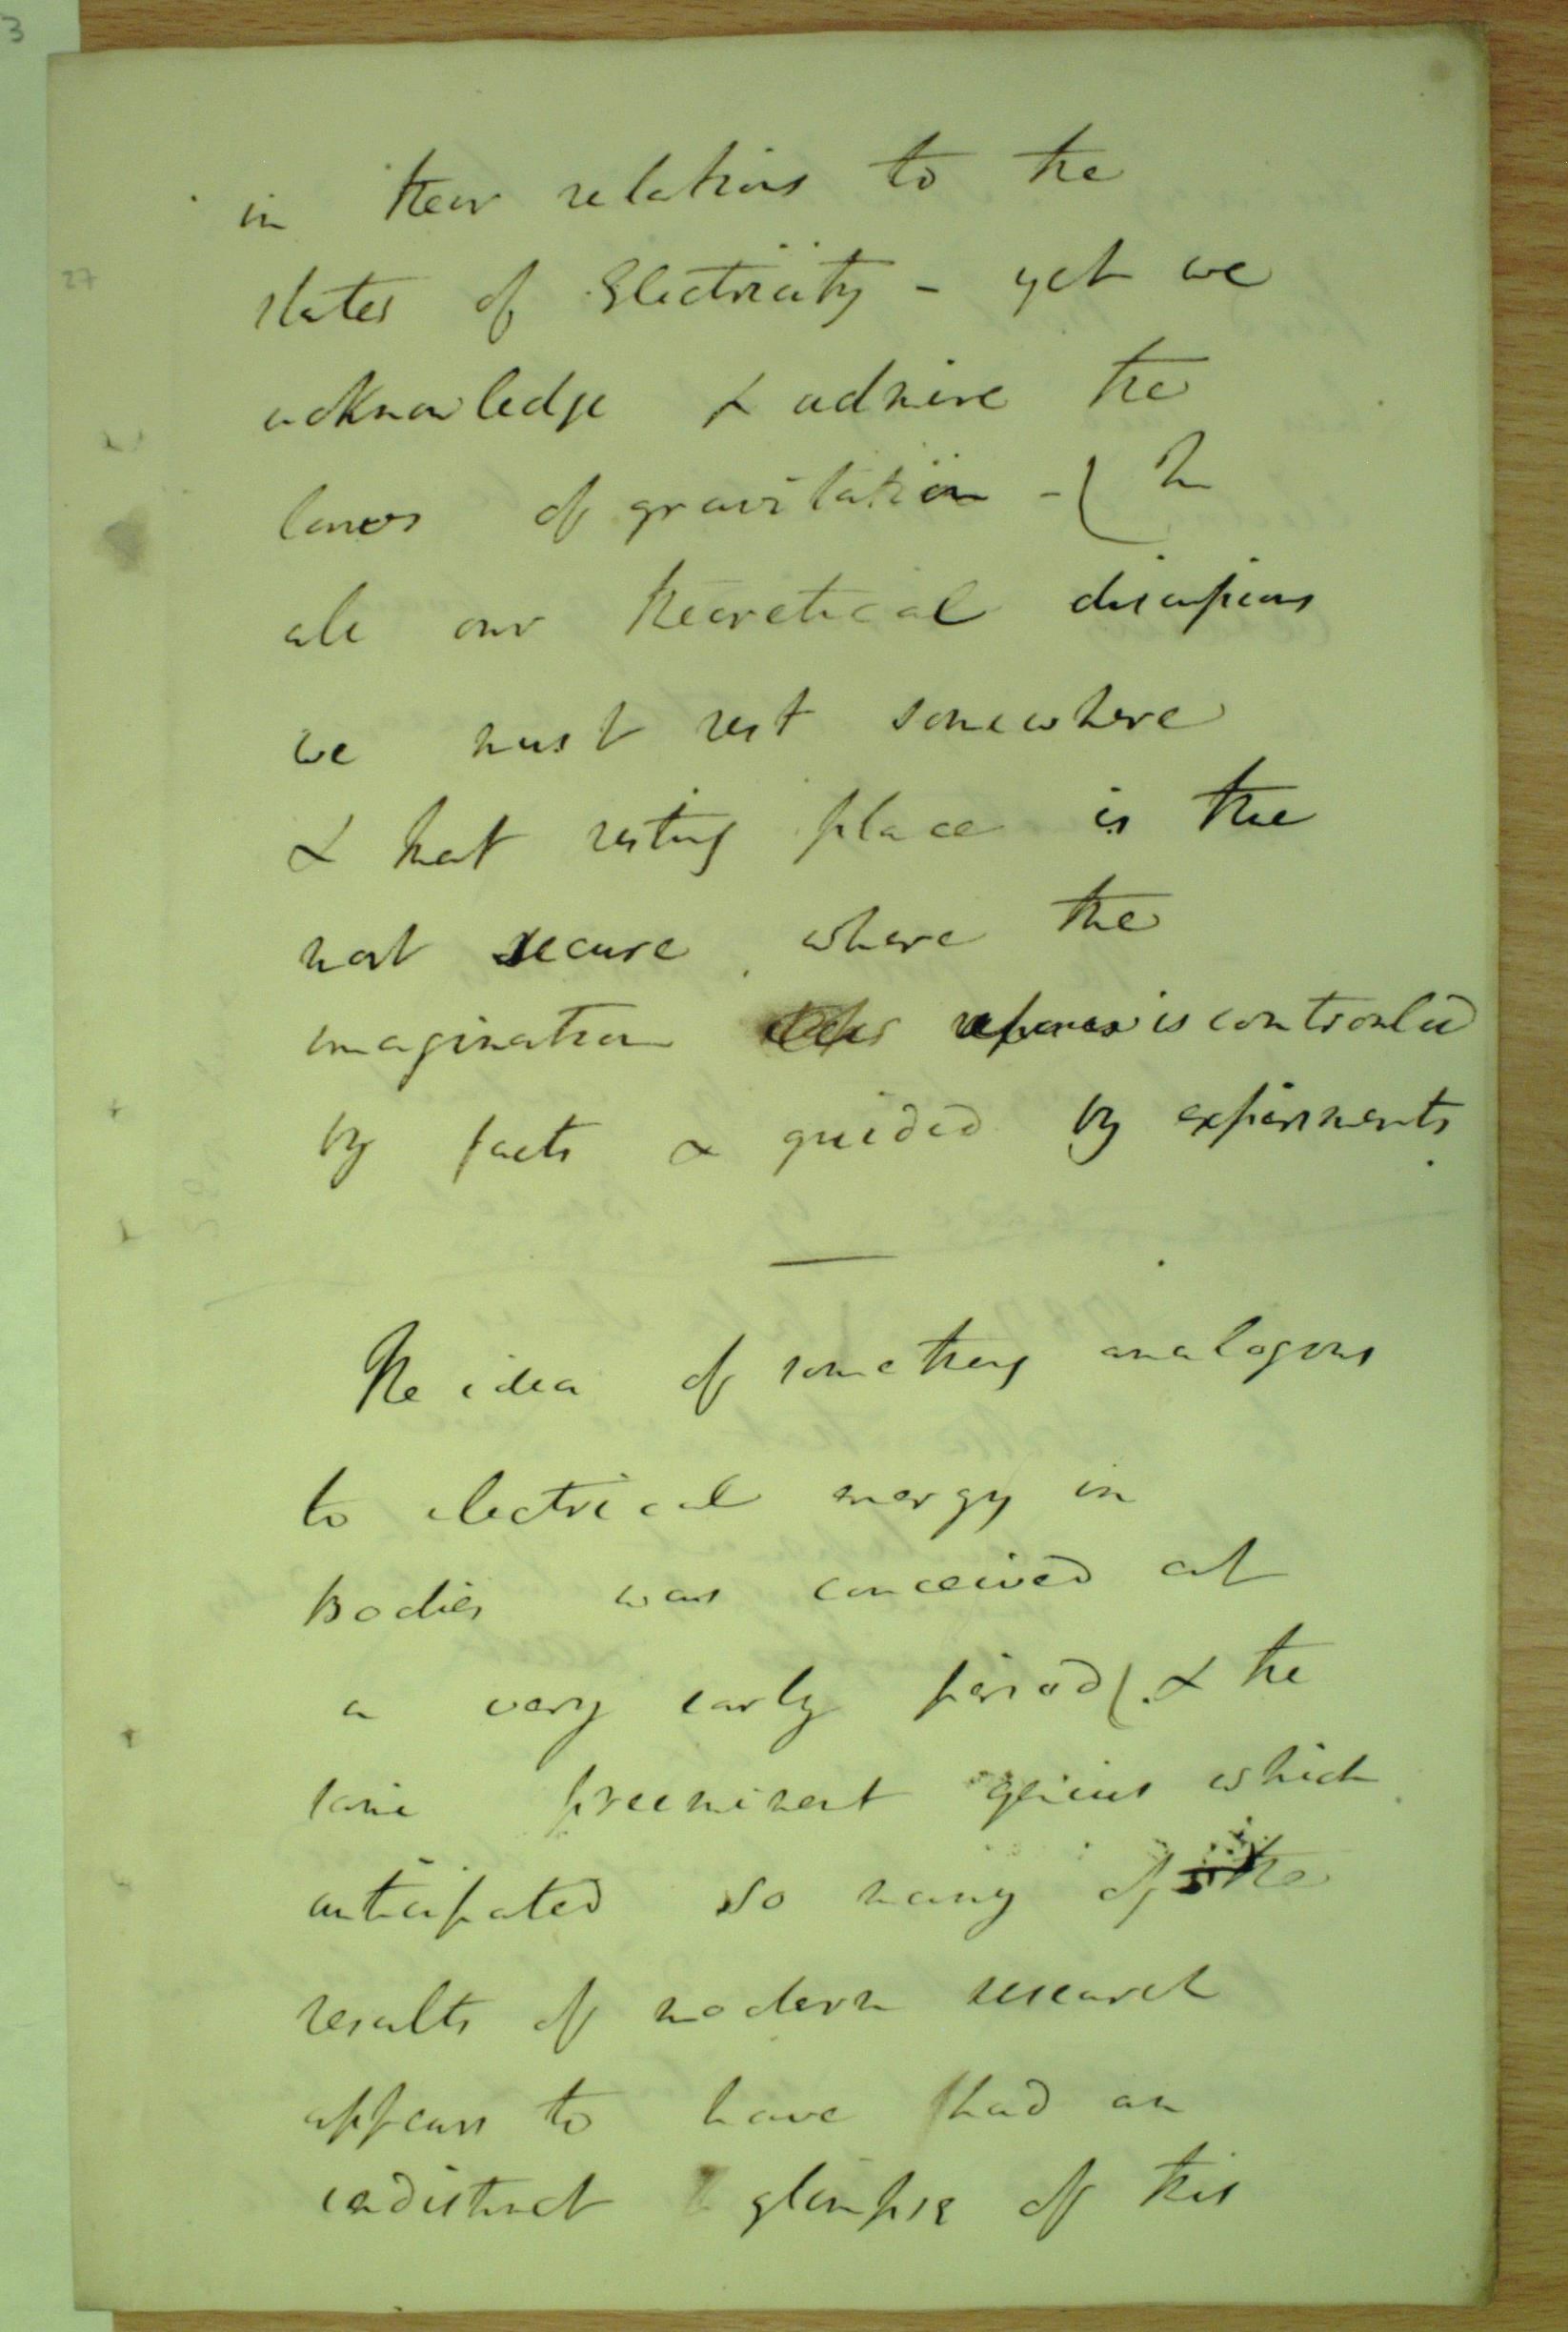 3
27
in their relations to the
states of Electricity - yet we
acknowledge & admire the
laws of gravitation - ( In
all our theoretical discussions
we must rest somewhere
& that resting place is the
most secure where the
imagination is controuled
by facts & guided by experiments
The idea of something analogous
to electrical energy in
Bodies was conceived at
a very early period (. & the
same preeminent genius which
anticipated so many of the
results of modern research
appears to have had an
indistinct glimpse of this